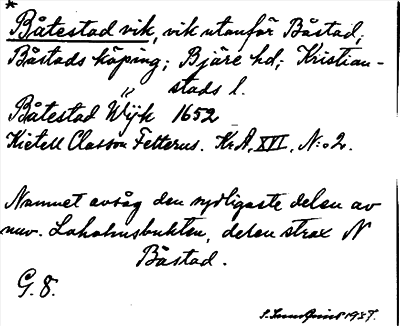 *
Båtestad vik, vik utanför Båstad;
Båstads köping; Bjäre hd; Kristian-
stads l.
Båtestad Wÿk 1652
Kietell Classon Felterus. KrA, XVI, N:o 2.
Namnet avsåg den sydligaste delen av
nuv. Laholmsbukten, delen strax N
Båstad.
G. 8.
1937.